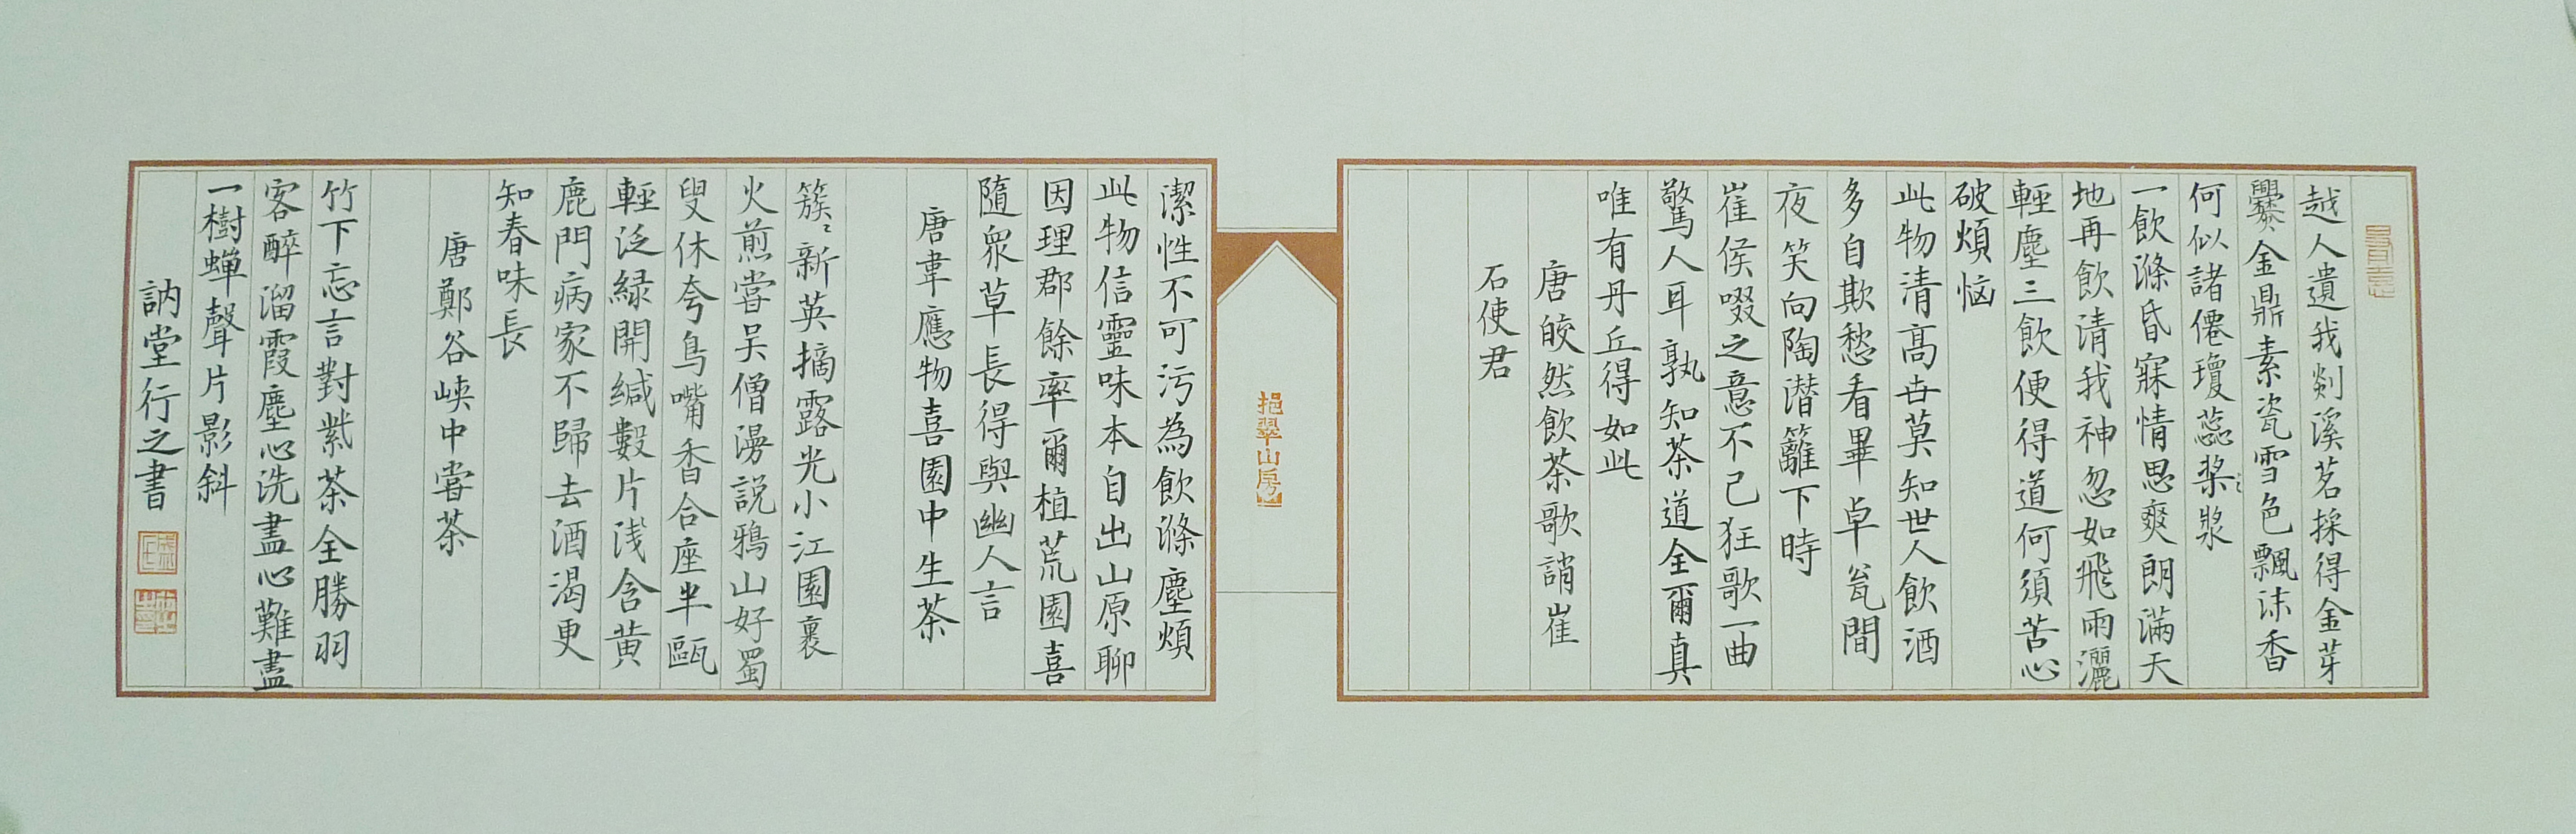 越人遺我剡溪茗採得金芽
爨金鼎素瓷雪色飄沫香
何似諸僊瓊蕊槳〻漿
一飲滌昏寐情思爽朗滿天
地再飲清我神忽如飛雨灑
輕塵三飲便得道何須苦心
破煩惱
此物清高世莫知世人飲酒
多自欺愁看畢卓瓮間
夜笑向陶潛籬下時
崔侯啜之意不已狂歌一曲
驚人耳孰知茶道全爾真
唯有丹丘得如此
唐皎然飲茶歌誚崔
石使君
挹翠山房
潔性不可污為飲滌塵煩
此物信靈味本自出山原聊
因理郡餘率爾植荒園喜
隨眾草長得與幽人言
唐韋應物喜園中生茶
簇〻新英摘露光小江園裏
火煎嘗吴僧漫説鴉山好蜀
叟休夸鳥嘴香合座半甌
輕泛緑開緘數片浅含黄
鹿門病家不歸去酒渴更
知春味長
唐鄭谷峽中嘗茶
竹下忘言對紫茶全勝羽
客醉溜霞塵心洗盡心難盡
一樹蝉聲片影斜
訥堂行之書